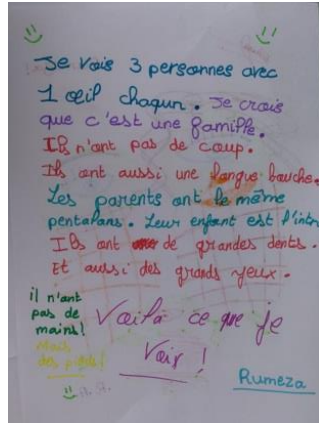 Je vois 3 personnes avec
1 œil chaqun. Je crois
que c'est une famille.
Ils n'ont pas de coup.
Ils ont aussi une longue bouche.
Les parents ont le même
pentalons. Leur enfant est l'intr
Ils ont de grandes dents.
Et aussi des grands yeux.
il n'ont
pas de
mains!
Mais
des pieds!
Voilà ce que je
Voir!
Rumeza